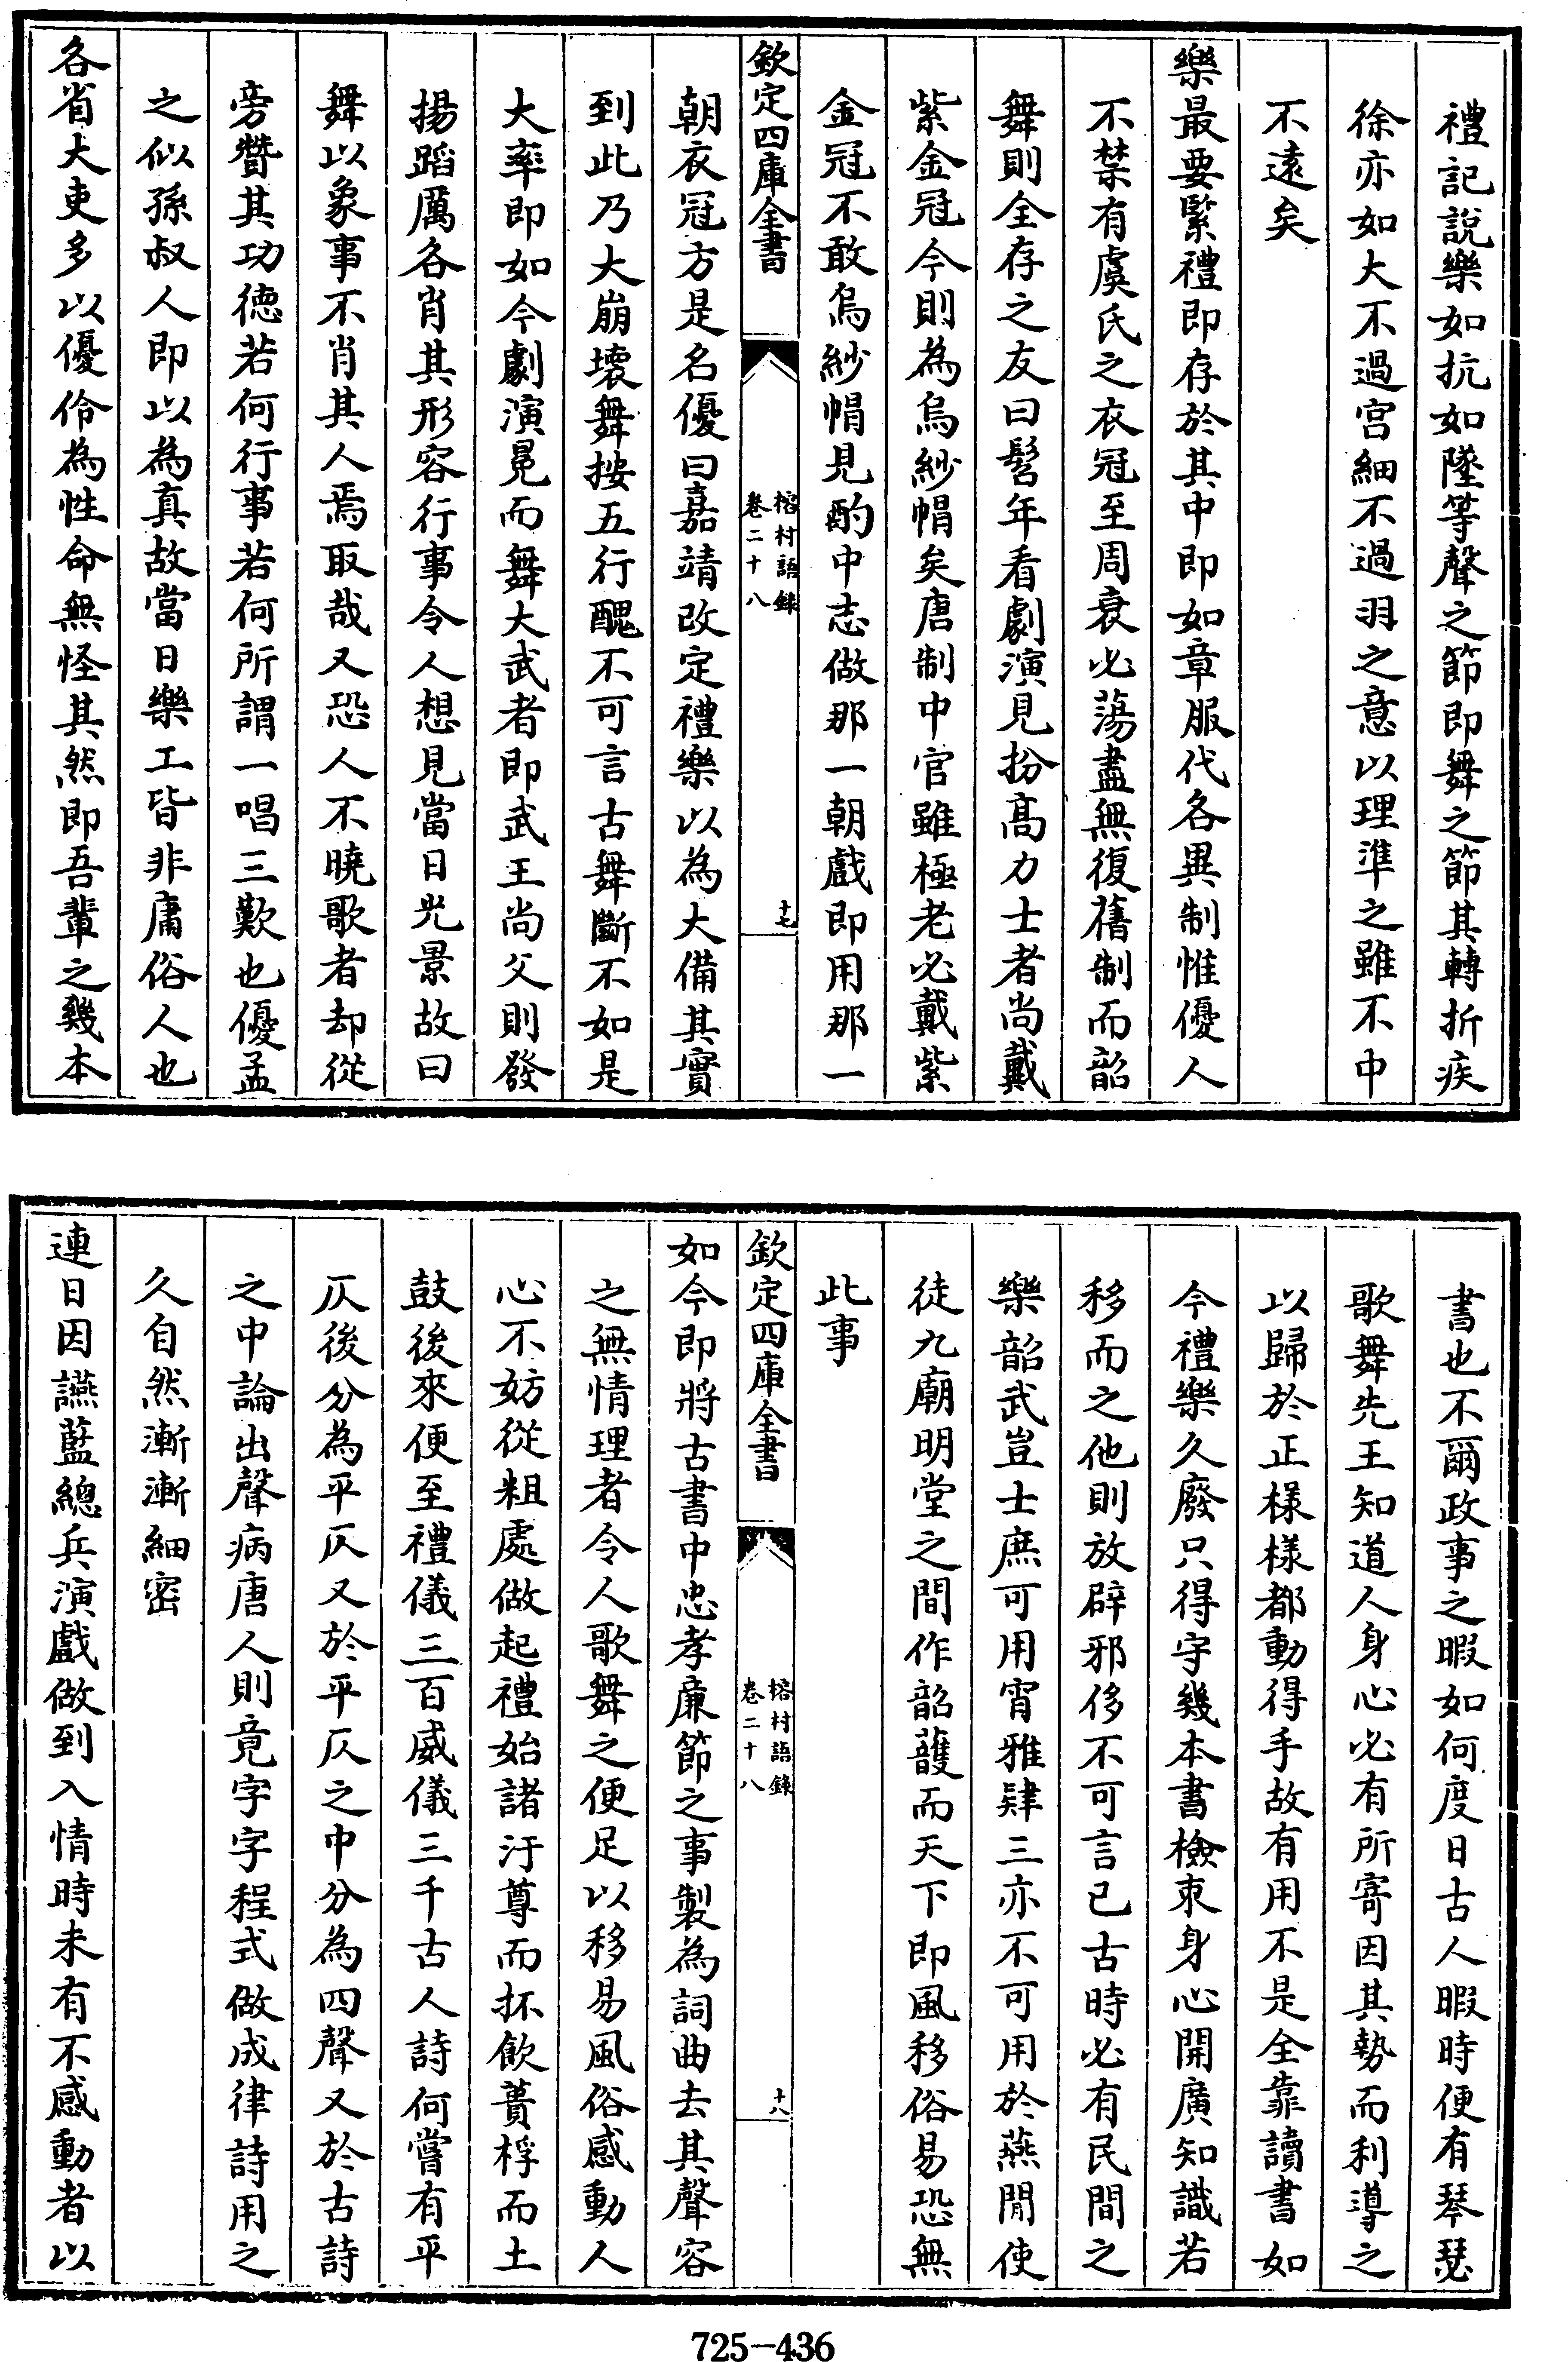 禮記說樂如抗如墜等聲之節即舞之節其轉折疾
徐亦如大不過宮細不過羽之意以理準之雖不中
不遠矣
樂最要緊禮即存於其中即如章服代各異制惟優人
不禁有虞氏之衣冠至周衰必蕩盡無復舊制而韶
舞則全存之友曰髫年看劇演見扮髙力士者尚戴
紫金冠今則為烏紗帽矣唐制中官雖極老必戴紫
金冠不敢烏紗帽見酌中志做那一朝戲即用那一
欽定四庫全書
榕村語錄
卷二十八
十七
朝衣冠方是名優曰嘉靖改定禮樂以為大備其實
到此乃大崩壞舞按五行醜不可言古舞斷不如是
大率即如今劇演冕而舞大武者即武王尚父則發
揚蹈厲各肖其形容行事令人想見當日光景故曰
舞以象事不肖其人焉取哉又恐人不曉歌者却從
旁贊其功德若何行事若何所謂一唱三歎也優孟
之似孫叔人即以為真故當日樂工皆非庸俗人也
各省大吏多以優伶為性命無怪其然即吾輩之幾本
書也不爾政事之暇如何度日古人暇時便有琴瑟
歌舞先王知道人身心必有所寄因其勢而利導之
以歸於正樣樣都動得手故有用不是全靠讀書如
今禮樂久廢只得守幾本書檢束身心開廣知識若
移而之他則放辟邪侈不可言已古時必有民間之
樂韶武豈士庶可用宵雅肄三亦不可用於燕閒使
徒九廟明堂之間作韶頀而天下即風移俗易恐無
此事
欽定四庫全書
榕村語錄
卷二十八
十八
如今即將古書中忠孝廉節之事製為詞曲去其聲容
之無情理者令人歌舞之便足以移易風俗感動人
心不妨從粗處做起禮始諸汙尊而抔飲蕢桴而土
鼓後來便至禮儀三百威儀三千古人詩何嘗有平
仄後分為平仄又於平仄之中分為四聲又於古詩
之中論出聲病唐人則竟字字程式做成律詩用之
久自然漸漸細密
連日因讌藍總兵演戲做到入情時未有不感動者以
725-436